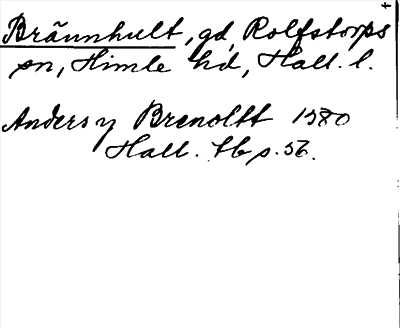 +
Bräunhult, gd, Rolfstorps
sn, Himle hd, Hall. l.
Anders y Brenoltt 1580
Hall. tb p. 56.